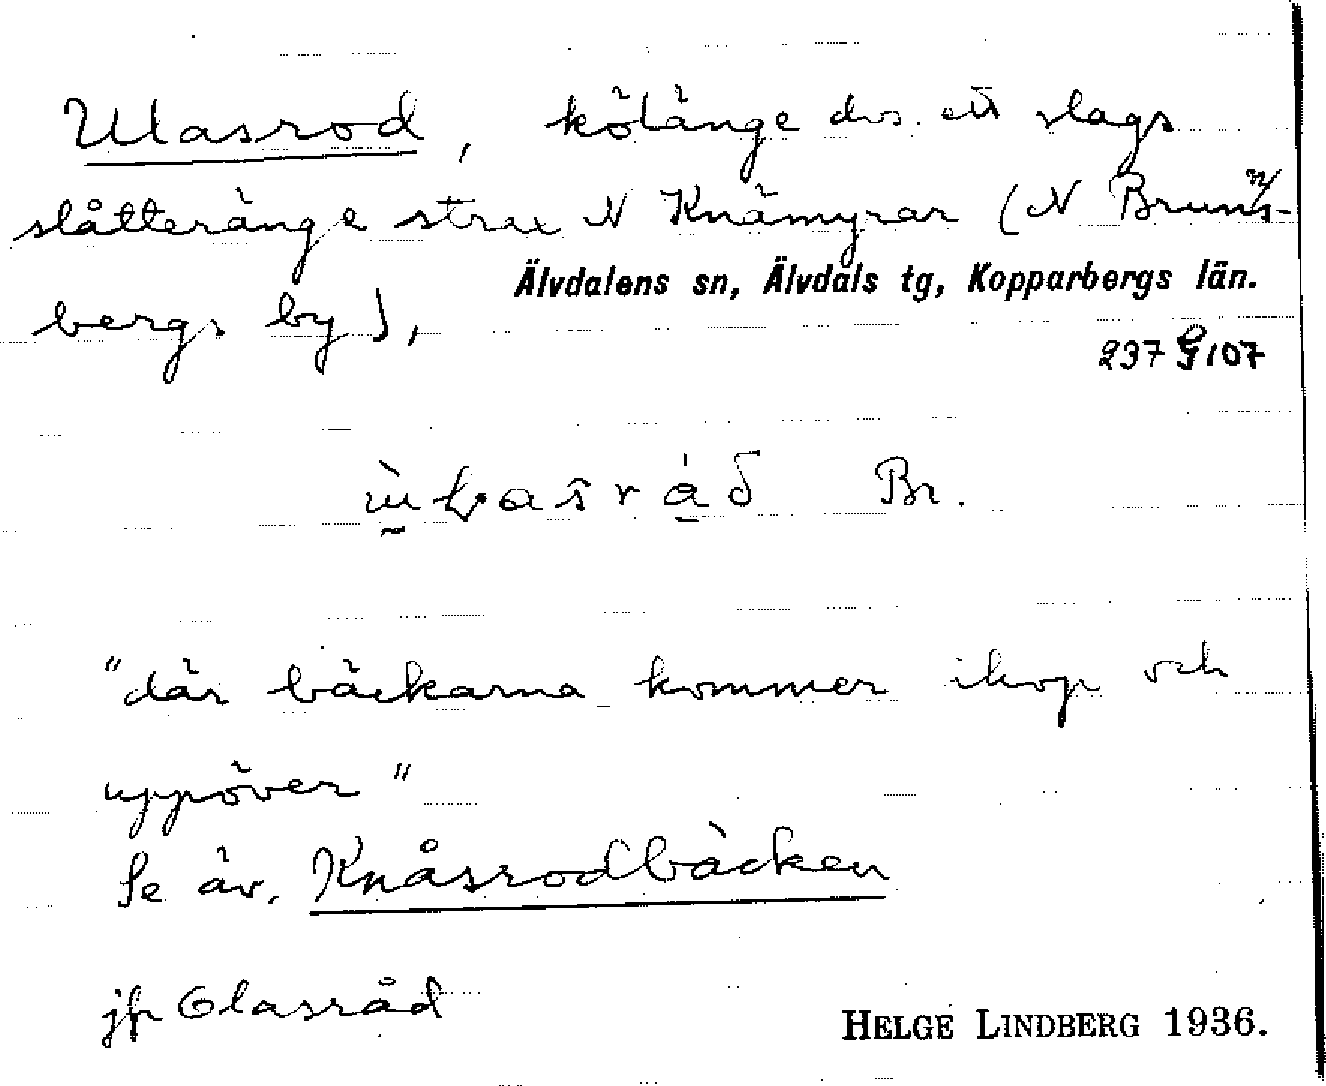 Ulasrod, kölänge dvs. ett slags
slåtteränge strax N Knämyrar (N Bruns-
bergs by),
Älvdalens sn, Älvdals tg, Kopparbergs län.
237 G 107
Br.
"där bäckarna kommer ihop och
uppöver"
Se äv. Knåsrodbäcken
jfr Olasråd
HELGE LINDBERG 1936.